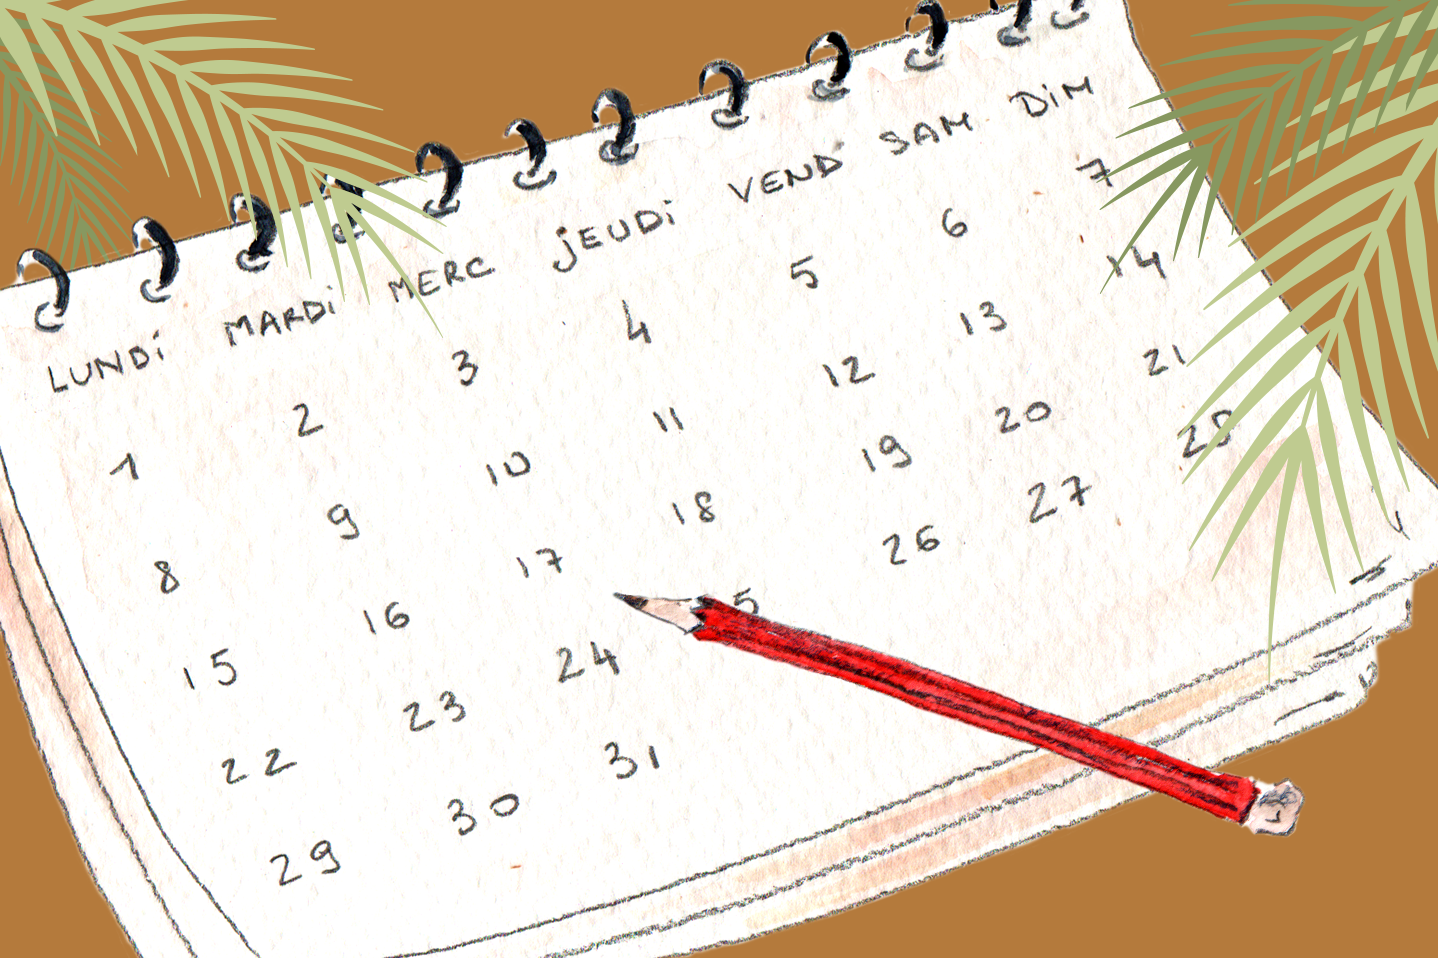 LUNDi MARDi MERC jEUDi VEND SAM DiM
1 2 3 4 5 6 7
8 9 10 11 12 13 14
15 16 17 18 19 20 21
22 23 24 5 26 27 28
29 30 31